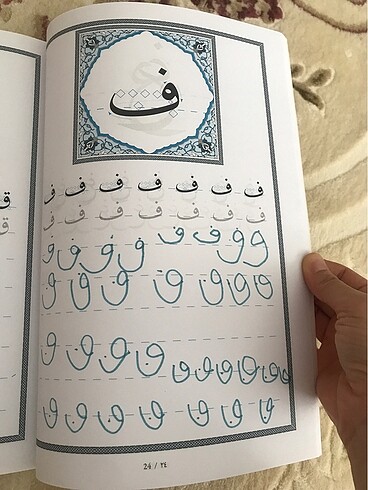 ف
ف ف ف ف ف ف ف
ف ف ف ف ف ف ف
ف ف ف ف ف ف ف ف
ف ف ف ف ف ف ف
ف ف ف ف ف ف ف ف ف ف
ف ف ف ف ف ف ف
24 / ٢٤